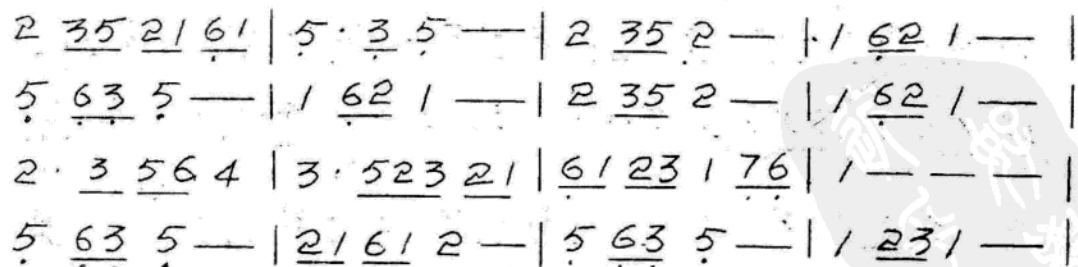 2 35 21 61 | 5 · 3 5 — | 2 35 2 — | 1 62 1 — |
5 63 5 — | 1 62 1 — | 2 35 2 — | 1 62 1 — |
2 · 3 56 4 | 3 · 523 21 | 61 23 1 76 | 1 — — — |
5 63 5 — | 21 61 2 — | 5 63 5 — | 1 23 1 — |